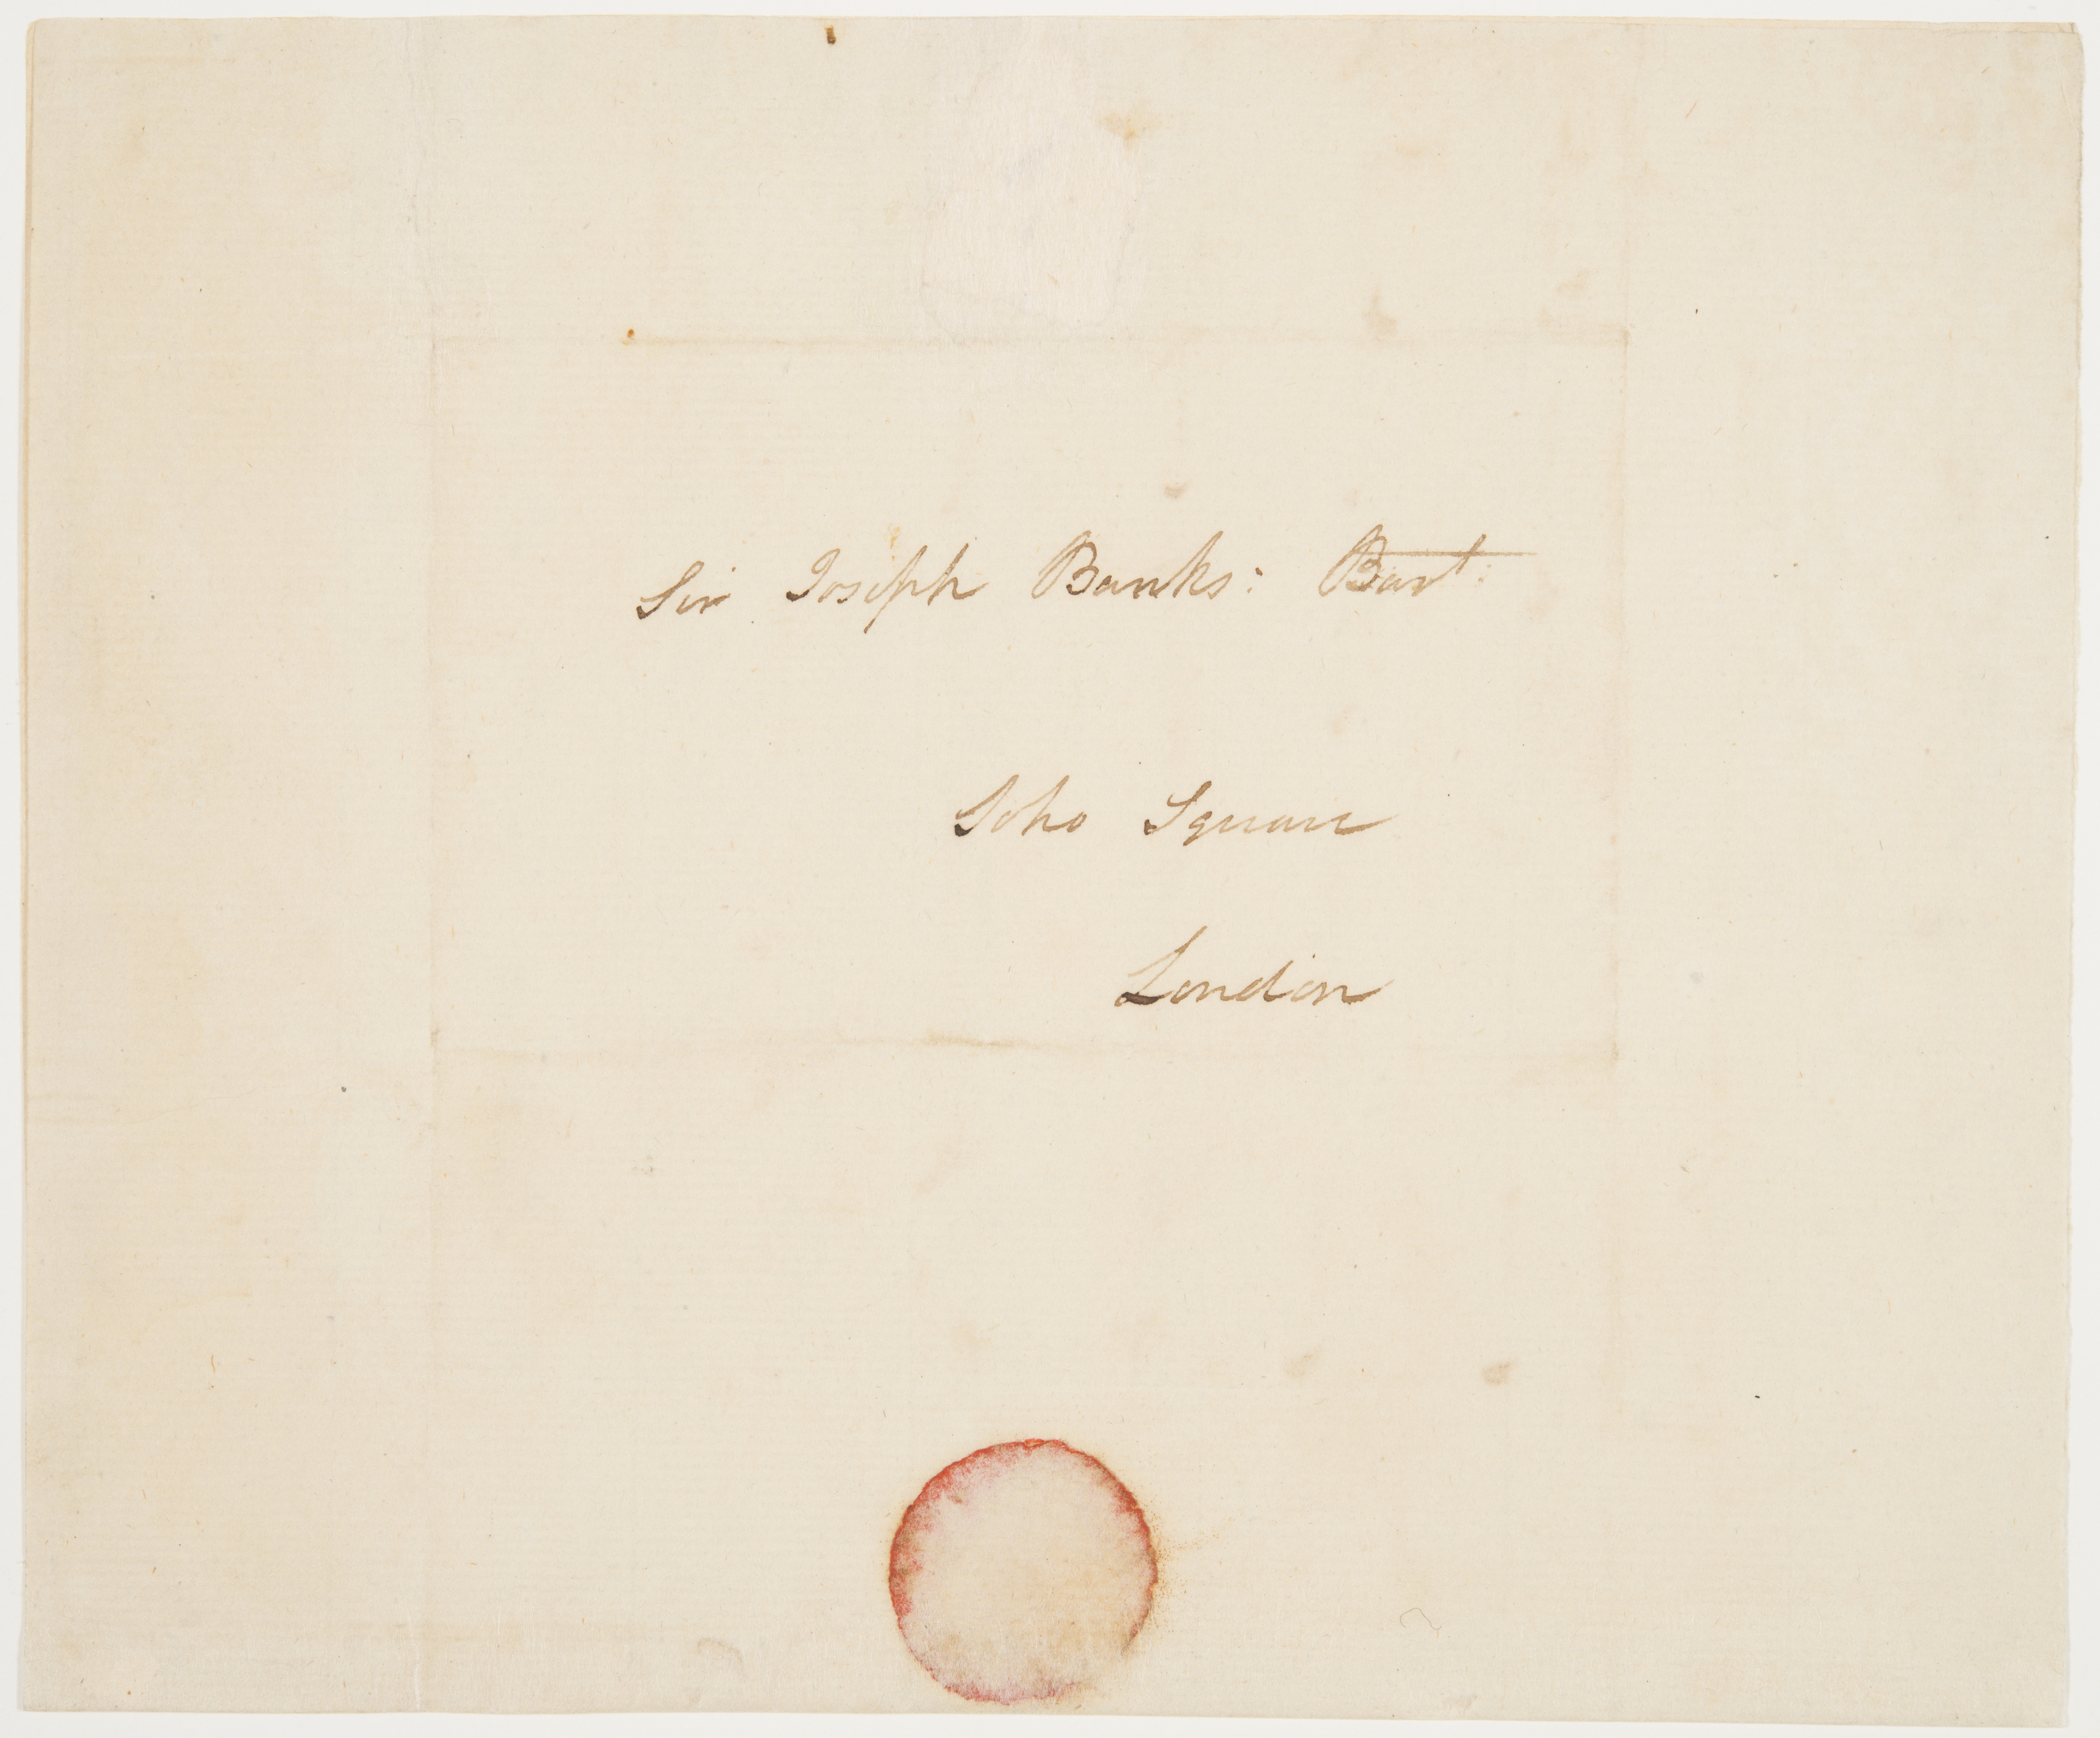 Sir Joseph Banks: Bart:
Soho Square
London